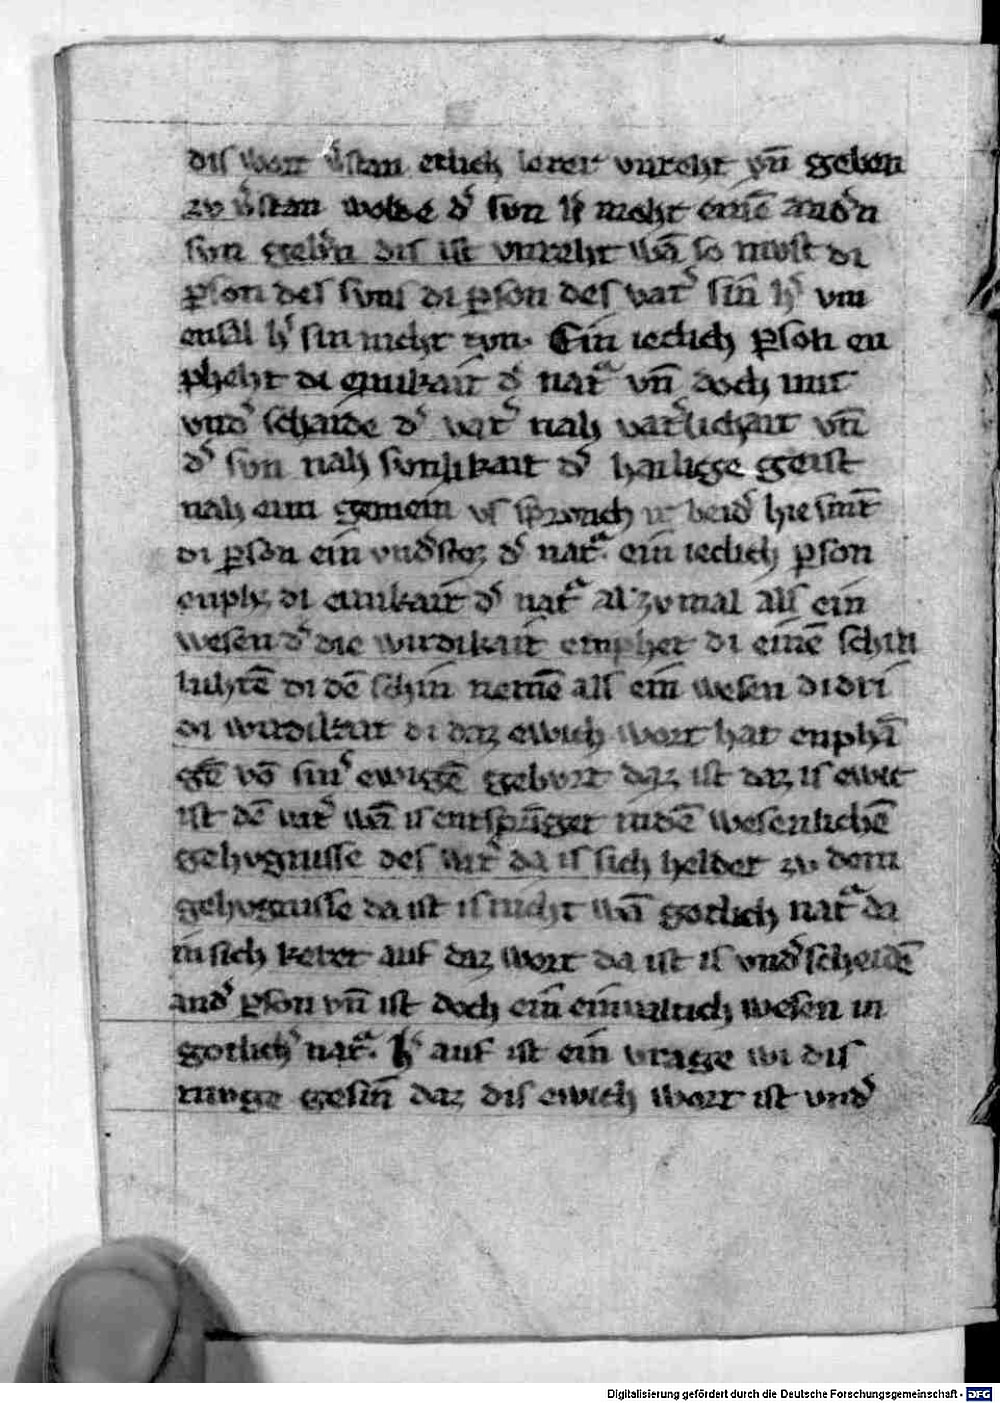 dis wort v̾stan etlich lerer vnreht vn̄ geben
zv v̾stan wolte d̾ svn h̾ moht eine̅ and̾n
svn geb̾n dis ist vnreht wa̅ so mvst di
p̱son des svns di p̱son des vat̾ sin h̾ vm
h̾ sin niht tvn. Ein ieclich p̱son en
pheht di einikait d̾ natͣ vn̄ doch mit
vnd̾ schaide d̾ vat̾ nah vat̾lichait vn̄
d̾ svn nah svnlikait d̾ hailigge geist
nah eim gemein vs sprvnch ir beid̾ hie
di p̱son ein d̾ natͣ. ein ieclich p̱son
enph̾ di einikait d̾ natͣ alzvmal als ein
wesen d̾ die wirdikait emphet di eine̅ schin
luhte̅ di de̅ schin neme̅ als ein wesen di dri
di wirdikait di daz ewich wort hat enpha̅
ge̅ vo̅ sin̾ ewige̅ gebvrt daz ist daz is ewic
ist de̅ vat̾ wa̅ is entspri̅get in de̅ wesenliche̅
gehvgnisse des vat̾ da is sich heldet zv dem
gehvgnisse da ist is niht wa̅ gotlich natͣ da
in sich keret auf daz wort da ist is vnd̾scheide̅
and̾ p̱son vn̄ ist doch ein einvaltich wesen in
gotlich̾ natͣ. H̾ auf ist ein vrage wi dis
mvge gesin̅ daz dis ewich wort ist vnd̾